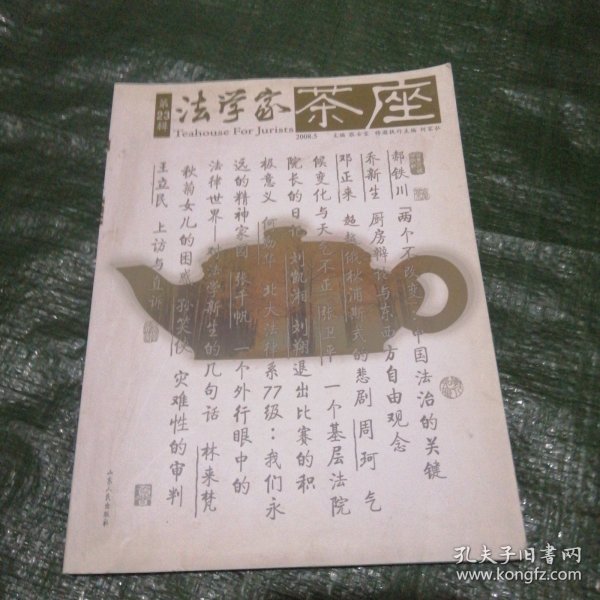 第23辑
法学家茶座
Teahouse For Jurists
2008.5
主编 张士宝 特邀执行主编 何家弘
郝铁川 “两个不改变”：中国法治的关键
乔新生 厨房辩论与东西方自由观念
邓正来 超越俄狄浦斯式的悲剧 周珂 气
候变化与天气不正 张卫平 一个基层法院
院长的日记 刘凯湘 刘翔退出比赛的积
极意义 何勤华 北大法律系77级：我们永
远的精神家园 张千帆 一个外行眼中的
法律世界——对法学新生的几句话 林来梵
秋菊女儿的困惑 孙笑侠 灾难性的审判
王立民 上访与直诉
山东人民出版社
孔夫子旧书网
www.kongfz.com